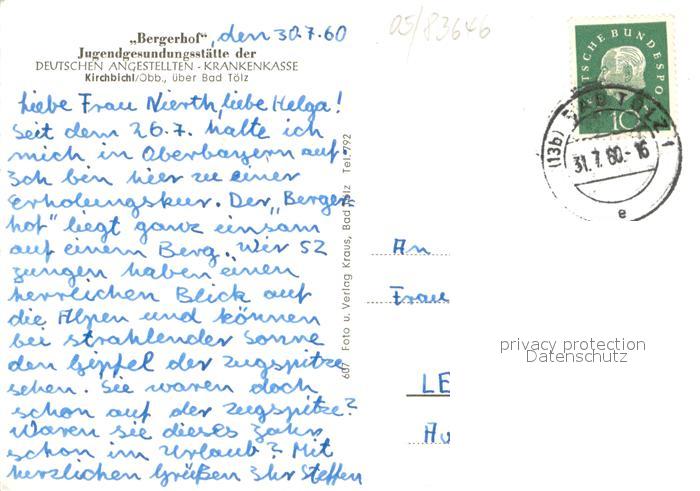 „Bergerhof“, den 30.7.60
Jugendgesundungsstätte der
DEUTSCHEN ANGESTELLTEN - KRANKENKASSE
Kirchbichl/Obb., über Bad Tölz
Liebe Frau Nierth, liebe Helga!
Seit dem 26.7. halte ich
mich in Oberbayern auf.
Ich bin hier zu einer
Erholungskur. Der „Berger-
hof“ liegt ganz einsam
auf einem Berg. Wir 52
Jungen haben einen
herrlichen Blick auf
die Alpen und können
bei strahlender Sonne
den Gipfel der Zugspitze
sehen. Sie waren doch
schon auf der Zugspitze?
Waren Sie dieses Jahr
schon im Urlaub? Mit
herzlichen Grüßen Ihr Steffen
607 Foto u. Verlag Kraus, Bad Tölz Tel. 792
05/83646
TSCHE BUNDESPO
10
(13b) BAD TÖLZ 1
31.7.60.-16
e
An
Frau
LE
Au
privacy protection
Datenschutz